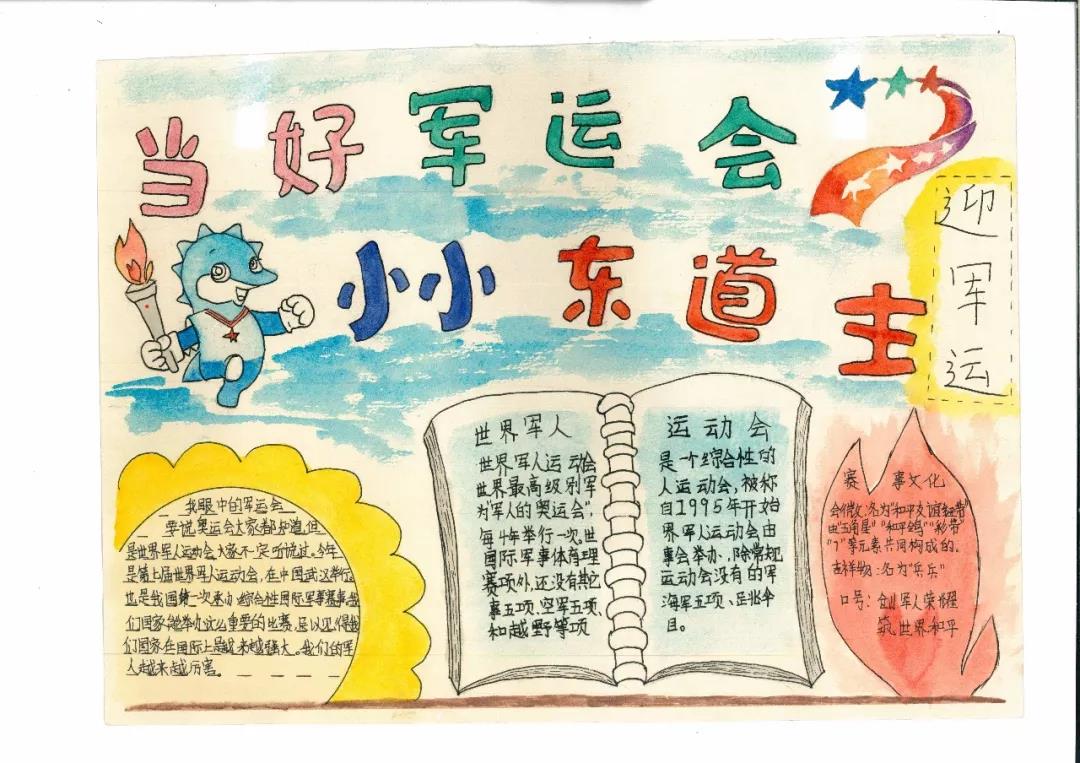 当好军运会
小小东道主
迎军运
我眼中的军运会
要说奥运会大家都知道,但
是世界军人运动会大家不一定听说过。今年
是第七届世界军人运动会,在中国武汉举行
也是我国第一次承办综合性国际军事赛事,我
们国家能举办这么重要的比赛,足以见得我
们国家在国际上是越来越强大。我们的军
人越来越厉害。
世界军人
世界军人运动会
世界最高级别军
为“军人的奥运会”,
每4年举行一次,世
国际军事体育理
赛项外,还没有其它
事五项、空军五项、
和越野等项
运动会
是一个综合性的
人运动会,被称
自1995年开始
界军人运动会由
事会举办,除常规
运动会没有的军
海军五项、跳伞
目。
赛事文化
会徽:名为“和平友谊纽带”
由“五角星”“和平鸽”“彩带”
“7”等元素共同构成的。
吉祥物:名为“兵兵”
口号:创军人荣耀
筑世界和平